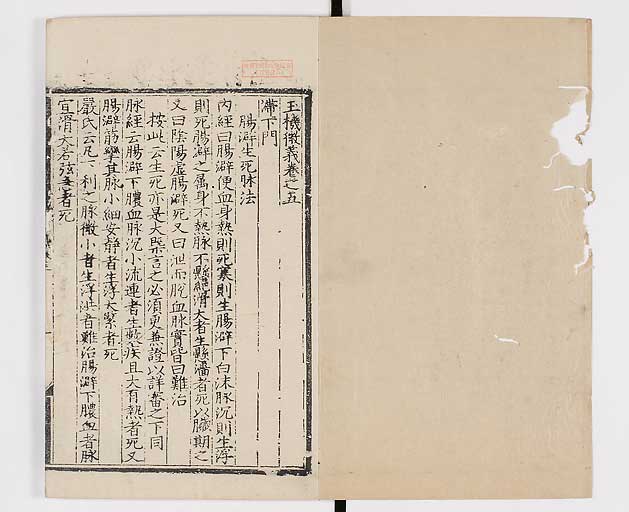 玉機微義卷之五
滯下門
腸澼生死脉法
內經曰腸澼便血身熱則死寒則生腸澼下白沫脉沉則生浮
則死腸澼之屬身不熱脉不懸絕滑大者生懸濇者死以臟期之
又曰陰陽虛腸澼死又曰泄而脫血脉實皆曰難治
按此云生死亦是大槩言之必須更兼證以詳審之下同
脉經云腸澼下膿血脉沉小流連者生數疾且大有熱者死又
腸澼筋攣其脉小細安靜者生浮大緊者死
嚴氏云凡下利之脉微小者生浮洪者難治腸澼下膿血者脉
宜滑大若弦急者死